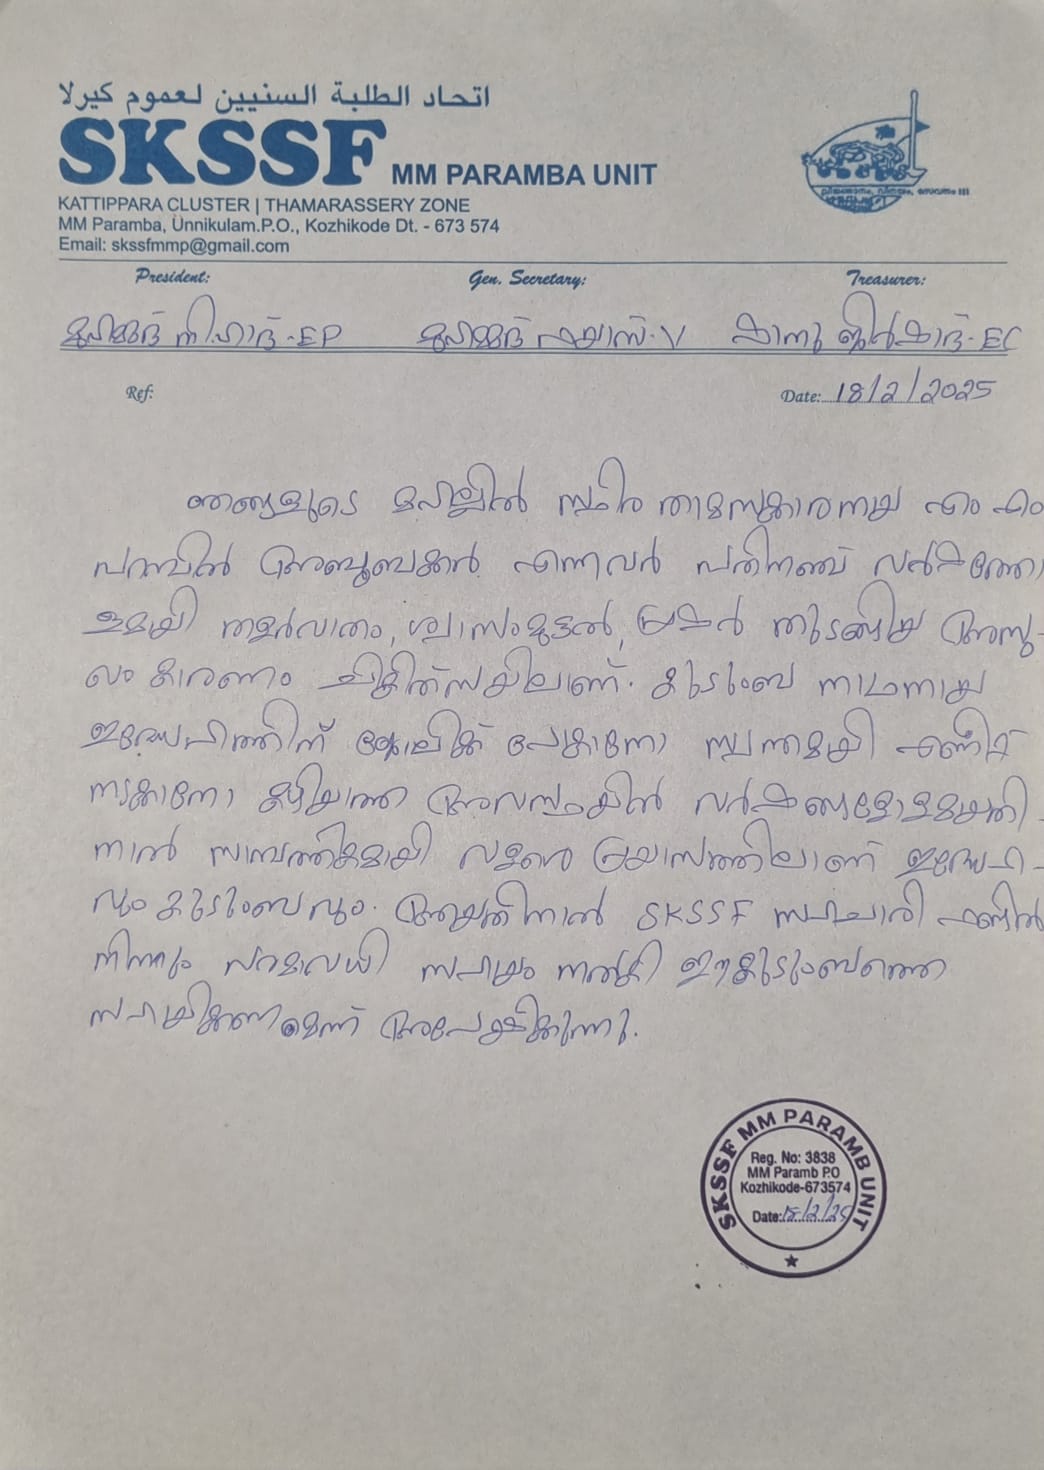 اتحاد الطلبة السنيين لعموم كيرلا
SKSSF MM PARAMBA UNIT
KATTIPPARA CLUSTER | THAMARASSERY ZONE
MM Paramba, Unnikulam.P.O., Kozhikode Dt. - 673 574
Email: skssfmmp@gmail.com
President: Gen. Secretary: Treasurer:
മുഹമ്മദ് നിഹാദ്-EP മുഹമ്മദ് ഫയാസ്.V ഷാനു ജിൻഷാദ്-EC
Ref: Date: 18/2/2025
ഞങ്ങളുടെ മഹല്ലിൽ സ്ഥിര താമസക്കാരനായ എം എം
പറമ്പിൽ അബൂബക്കർ എന്നവർ പതിനഞ്ച് വർഷത്തോ
ളമായി തളർവാതം, ശ്വാസംമുട്ടൽ, പ്രഷർ തുടങ്ങിയ അസു-
ഖം കാരണം ചികിത്സയിലാണ്. കുടുംബ നാഥനായ
ഇദ്ദേഹത്തിന് ജോലിക്ക് പോകാനോ സ്വന്തമായി എണീറ്റ്
നടക്കാനോ കഴിയാത്ത അവസ്ഥയിൽ വർഷങ്ങളോളമായതി-
നാൽ സാമ്പത്തികമായി വളരെ പ്രയാസത്തിലാണ് ഇദ്ദേഹ-
വും കുടുംബവും. ആയതിനാൽ SKSSF സഹചാരി ഫണ്ടിൽ
നിന്നും പരമാവധി സഹായം നൽകി ഈ കുടുംബത്തെ
സഹായിക്കണമെന്ന് അപേക്ഷിക്കുന്നു.
SKSSF MM PARAMB UNIT
Reg. No: 3838
MM Paramb P.O
Kozhikode-673574
Date: 18/2/25